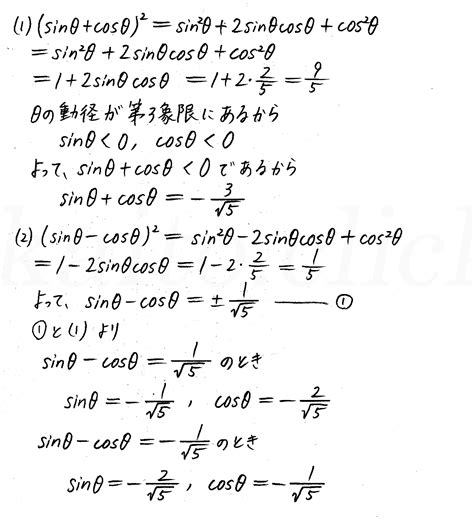 (1) (sinθ+cosθ)² = sin²θ+2sinθcosθ+cos²θ
= sin²θ+2sinθcosθ+cos²θ
= 1+2sinθcosθ = 1+2・2/5 = 9/5
θの動径が第3象限にあるから
sinθ<0, cosθ<0
よって、sinθ+cosθ<0であるから
sinθ+cosθ = -3/√5
(2) (sinθ-cosθ)² = sin²θ-2sinθcosθ+cos²θ
= 1-2sinθcosθ = 1-2・2/5 = 1/5
よって、sinθ-cosθ = ±1/√5 ——— ①
①と(1)より
sinθ-cosθ = 1/√5 のとき
sinθ = -1/√5, cosθ = -2/√5
sinθ-cosθ = -1/√5 のとき
sinθ = -2/√5, cosθ = -1/√5